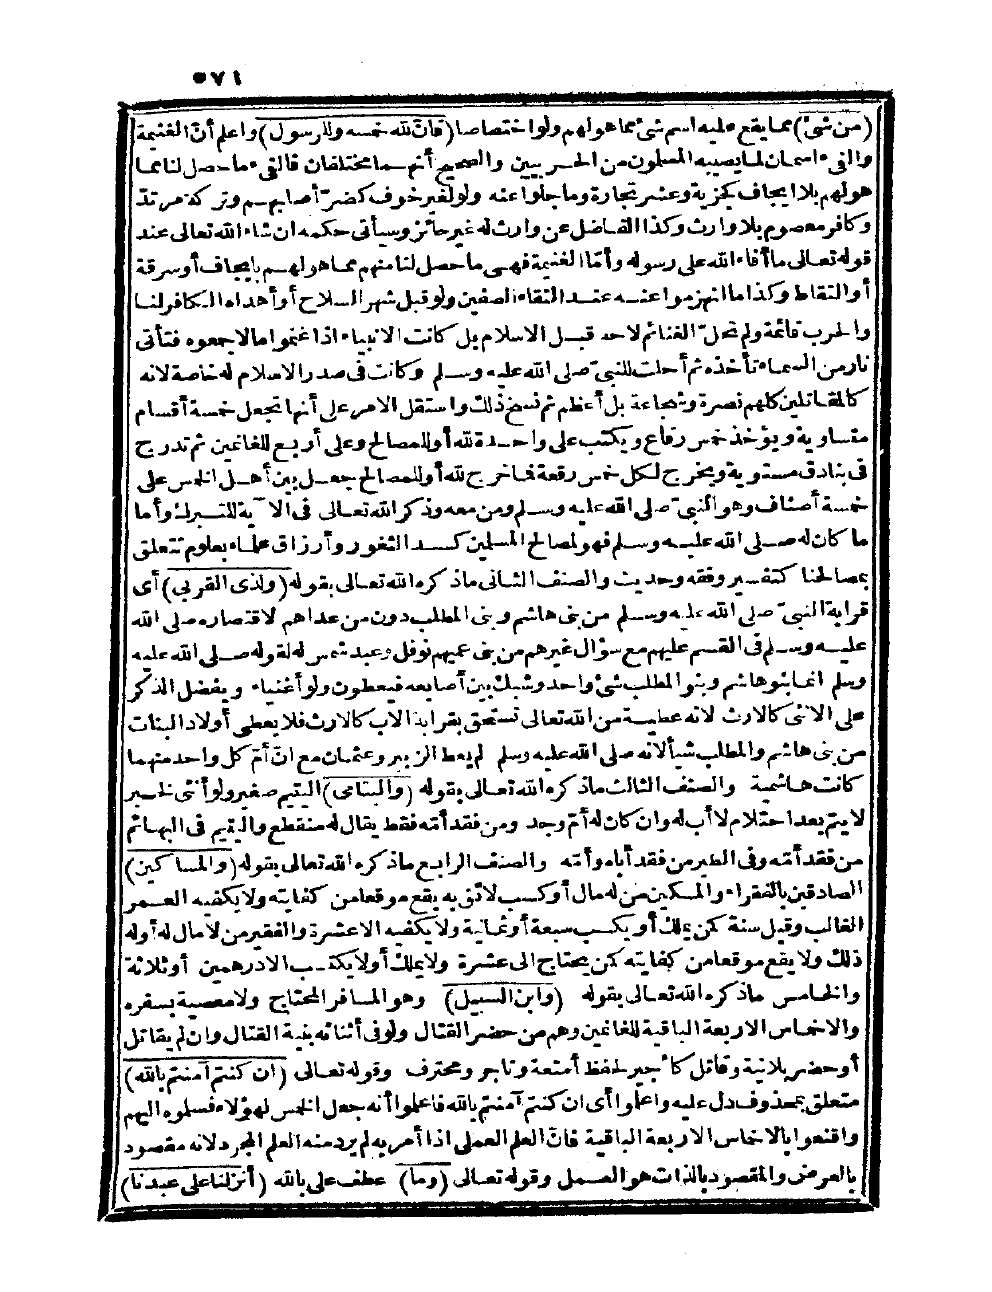 ٥٧١
(من شئ) مما يقع عليه اسم شئ مما هو لهم ولو اختصاصا (فانّ لله خمسه وللرسول) واعلم أنّ الغنيمة
والفىء اسمان لما يصيبه المسلمون من الحربيين والصحيح أنهما مختلفان فالفىء ما حصل لنا مما
هو لهم بلا ايجاف كجزية وعشر تجارة وما جلوا عنه ولو لغير خوف كضرّ أصابهم وتركة مرتدّ
وكافر معصوم بلا وارث وكذا الفاضل عن وارث له غير حائز وسيأتى حكمه ان شاء الله تعالى عند
قوله تعالى ما أفاء الله على رسوله وأمّا الغنيمة فهى ما حصل لنا منهم مما هو لهم بايجاف أو سرقة
أو التقاط وكذا ما انهزموا عنه عند التقاء الصفين ولو قبل شهر السلاح أو أهداه الكافر لنا
والحرب قائمة ولم تحلّ الغنائم لاحد قبل الاسلام بل كانت الانبياء اذا غنموا مالا جمعوه فتأتى
نار من السماء تأخذه ثم أحلت للنبىّ صلى الله عليه وسلم وكانت فى صدر الاسلام له خاصة لانه
كالمقاتلين كلهم نصرة وشجاعة بل أعظم ثم نسخ ذلك واستقل الامر على أنها تجعل خمسة أقسام
متساوية ويؤخذ خمس رقاع ويكتب على واحدة لله أو للمصالح وعلى أربع للغانمين ثم تدرج
فى بنادق مستوية ويخرج لكل خمس رقعة فما خرج لله أو للمصالح جعل بين أهل الخمس على
خمسة أصناف وهو النبىّ صلى الله عليه وسلم ومن معه وذكر الله تعالى فى الآية للتبرك وأما
ما كان له صلى الله عليه وسلم فهو لمصالح المسلمين كسد الثغور وأرزاق علماء بعلوم تتعلق
بمصالحنا كتفسير وفقه وحديث والصنف الثانى ما ذكره الله تعالى بقوله (ولذى القربى) أى
قرابة النبىّ صلى الله عليه وسلم من بنى هاشم وبنى المطلب دون من عداهم لاقتصاره صلى الله
عليه وسلم فى القسم عليهم مع سؤال غيرهم من بنى عميهم نوفل وعبد شمس له لقوله صلى الله عليه
وسلم انما بنو هاشم وبنو المطلب شئ واحد وشبك بين أصابعه فيعطون ولو أغنياء ويفضل الذكر
على الانثى كالارث لانه عطية من الله تعالى تستحق بقرابة الاب كالارث فلا يعطى أولاد البنات
من بنى هاشم والمطلب شيأ لانه صلى الله عليه وسلم لم يعط الزبير وعثمان مع انّ أمّ كل واحد منهما
كانت هاشمية والصنف الثالث ما ذكره الله تعالى بقوله (واليتامى) اليتيم صغير ولو أنثى لخبر
لا يتم بعد احتلام لا أب له وان كان له أمّ وجد ومن فقد أمّه فقط يقال له منقطع واليتيم فى البهائم
من فقد أمّه وفى الطير من فقد أباه وأمّه والصنف الرابع ما ذكره الله تعالى بقوله (والمساكين)
الصادقين بالفقراء والمسكين من له مال أو كسب لائق به يقع موقعا من كفايته ولا يكفيه العمر
الغالب وقيل سنة كمن يملك أو يكسب سبعة أو ثمانية ولا يكفيه الا عشرة والفقير من لا مال له أوله
ذلك ولا يقع موقعا من كفايته كمن يحتاج الى عشرة ولا يملك أو لا يكتسب الا درهمين أو ثلاثة
والخامس ما ذكره الله تعالى بقوله (وابن السبيل) وهو المسافر المحتاج ولا معصية بسفره
والاخماس الاربعة الباقية للغانمين وهم من حضر القتال ولو فى أثنائه بنية القتال وان لم يقاتل
أو حضر بلا نية وقاتل كأجير لحفظ أمتعة وتاجر ومحترف وقوله تعالى (ان كنتم آمنتم بالله)
متعلق بمحذوف دل عليه واعلموا أى ان كنتم آمنتم بالله فاعلموا أنه جعل الخمس لهؤلاء فسلموه اليهم
واقنعوا بالاخماس الاربعة الباقية فانّ العلم العملى اذا أمر به لم يرد منه العلم المجرد لانه مقصود
بالعرض والمقصود بالذات هو العمل وقوله تعالى (وما) عطف على بالله (أنزلنا على عبدنا)